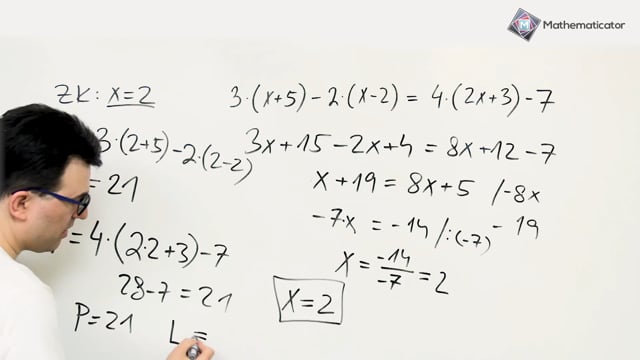 Mathematicator
ZK: x=2
3·(2+5)-2·(2-2)
= 21
= 4·(2·2+3)-7
28-7 = 21
P=21 L =
3·(x+5)-2·(x-2) = 4·(2x+3)-7
3x+15-2x+4 = 8x+12-7
x+19 = 8x+5 /-8x
-7·x = -14 /:(-7) -19
x = -14/-7 = 2
x=2